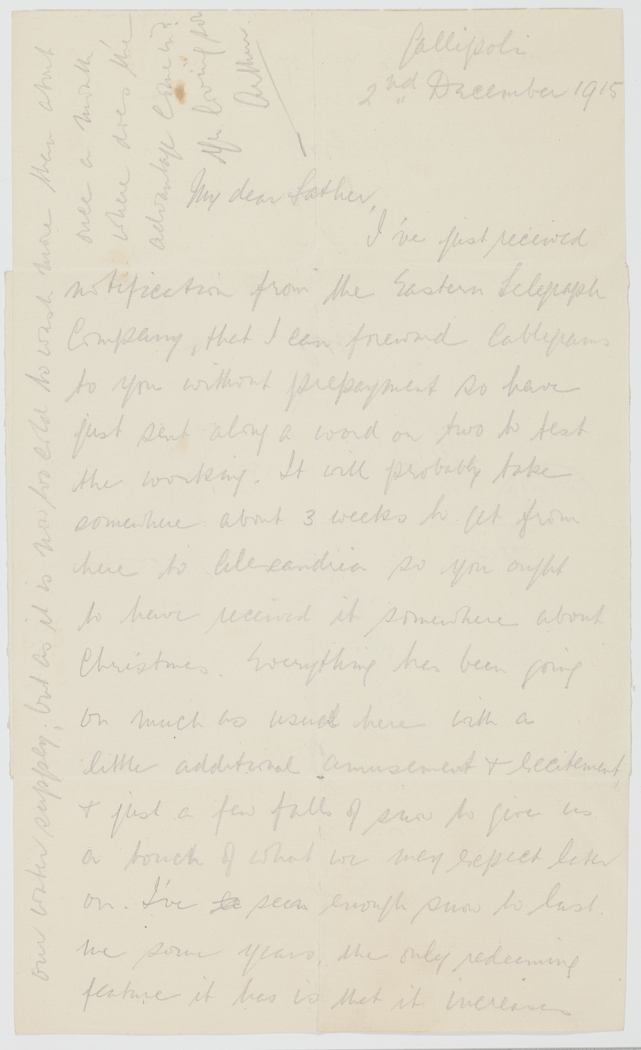 Gallipoli
2nd December 1915
My dear Father,
I've just received
notification from the Eastern Telegraph
Company, that I can foreword Cablegrams
to you without prepayment so have
just sent along a word or two to test
the working. It will probably take
somewhere about 3 weeks to get from
here to Alexandria so you ought
to have received it somewhere about
Christmas. Everything has been going
on much as usual here with a
little additional amusement & excitement,
& just a few falls of snow to give us
a touch of what we may expect later
on. I've seen enough snow to last
me some years, the only redeeming
feature it has is that it increases
our water supply, but as it is now too cold to wash more than about
once a month
where does the
advantage come in?
Yr loving son
Arthur.